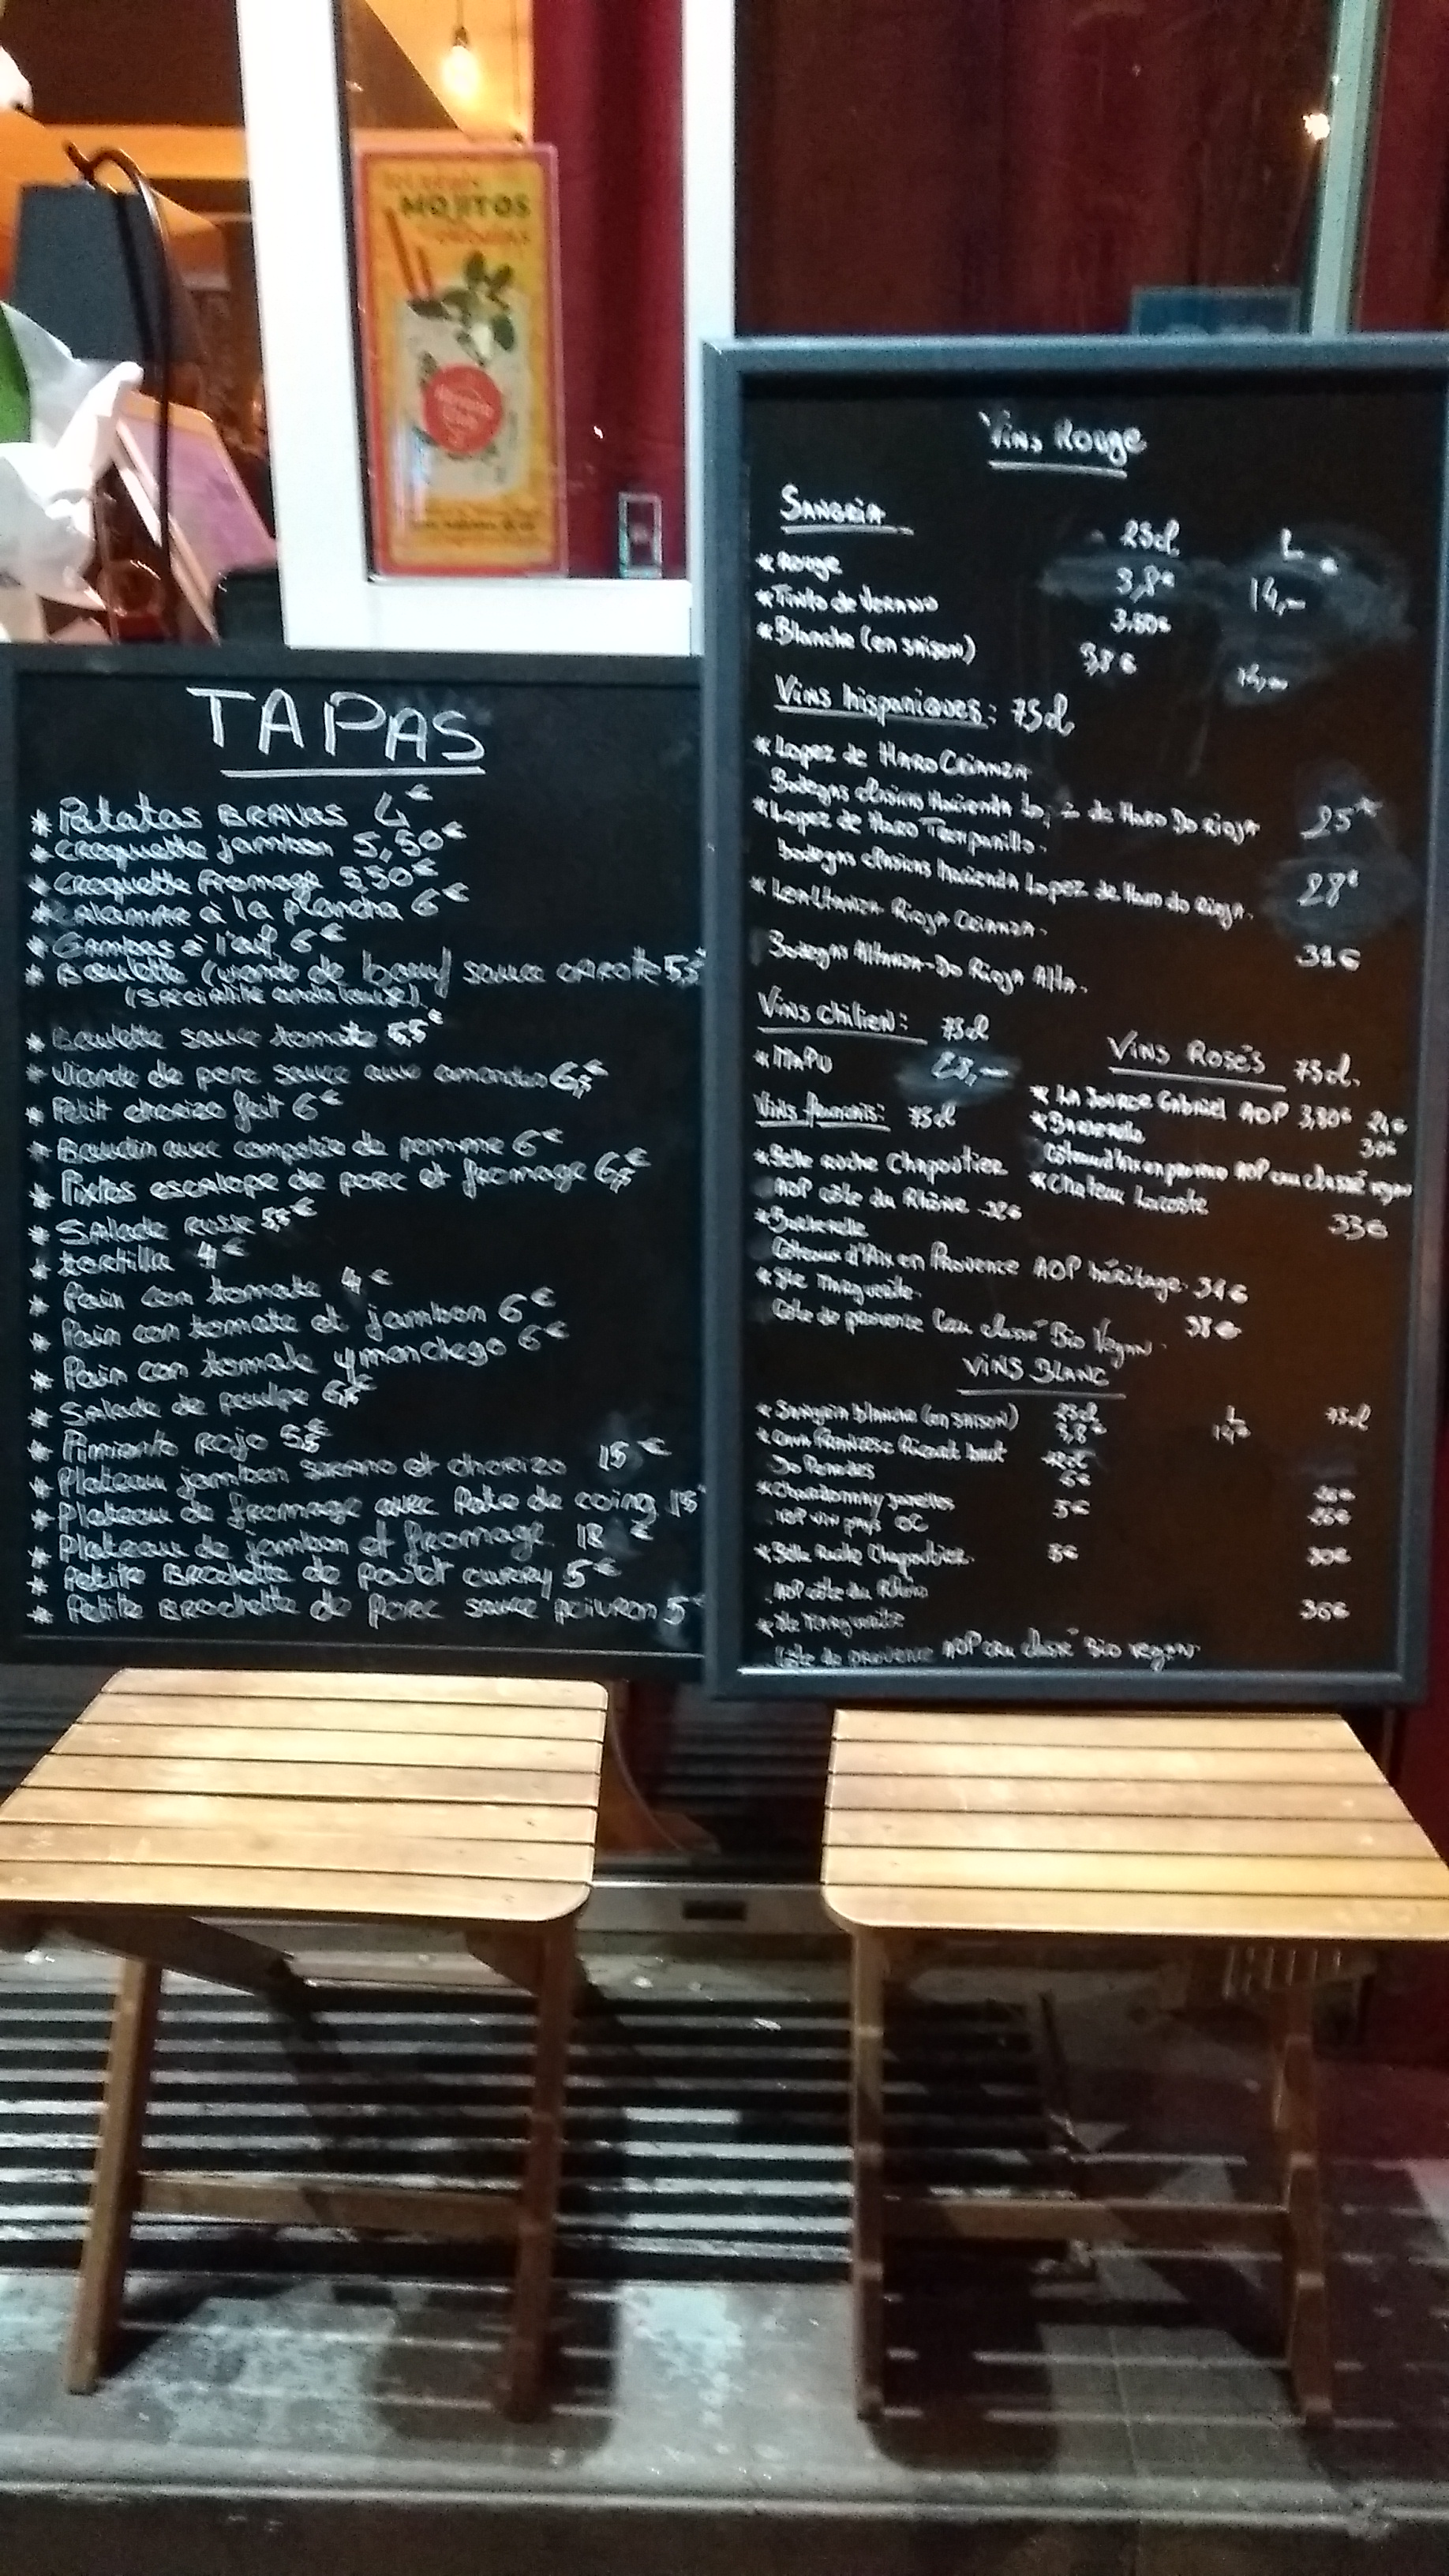 MOJITOS
TAPAS
* Patatas BRAVAS 4€
* Croquette jambon 5,50€
* Croquette fromage 5,50€
* Calamar à la plancha 6€
* Gambas à l'ail 6€
* Boulette (viande de boeuf sauce carotte 5,5
(Spécialité andalouse)
* Boulette sauce tomate 5,5€
* Viande de porc sauce aux amandes
* Petit chorizo frit 6€
* Boudin avec compotée de pomme 6€
* escalope de porc et fromage
* Salade russe 5,5€
* tortilla 4€
* Pain con tomate 4€
* Pain con tomate et jambon 6€
* Pain con tomate y manchego 6€
* Salade de poulpe
* Pimiento Rojo 5,5€
* Plateau jambon Serano et chorizo 15€
* Plateau de fromage avec Pate de coing 15
* Plateau de jambon et fromage 18€
* Petite Brochette de poulet curry 5€
* Petite Brochette de porc sauce poivron 5€
Vins Rouge
Sangria
25cl L
* Rouge 3,8€ 14,-
* Tinto de Verano 3,80€
* Blanche (en saison) 3,8€ 14,-
Vins hispaniques: 75cl
* Lopez de Haro Crianza
Bodegas clasica Hacienda de Haro Do Rioja 25€
* Lopez de Haro Tempranillo.
bodegas clasica hacienda Lopez de Haro do Rioja. 28€
* Lealtanza Rioja Crianza. 31€
Bodegas Altanza-Do Rioja Alta.
Vins chilien: 75cl
* MAPU
Vins français: 75cl
* Belle Roche Chapoutier
AOP côte du Rhône
Coteaux d'Aix en Provence AOP héritage. 31€
* Ste Marguerite.
Côte de provence Cru classé Bio Vegan.
VINS ROSÉS 75cl.
* LA SOURCE Gabriel AOP 3,80€ 24€
30€
Coteaux d'Aix en provence AOP cru classé vegan
* Chateau Lacoste
33€
VINS BLANC
* Sangria blanche (en saison) 25cl L 75cl
3,8€
Ricart brut
Do Penedes 6€
* Chardonnay
IGP vin pays OC 5€
* Belle Roche Chapoutier. 5€ 30€
AOP côte du Rhône
* Ste Marguerite 36€
Côte de provence AOP cru classé Bio vegan.